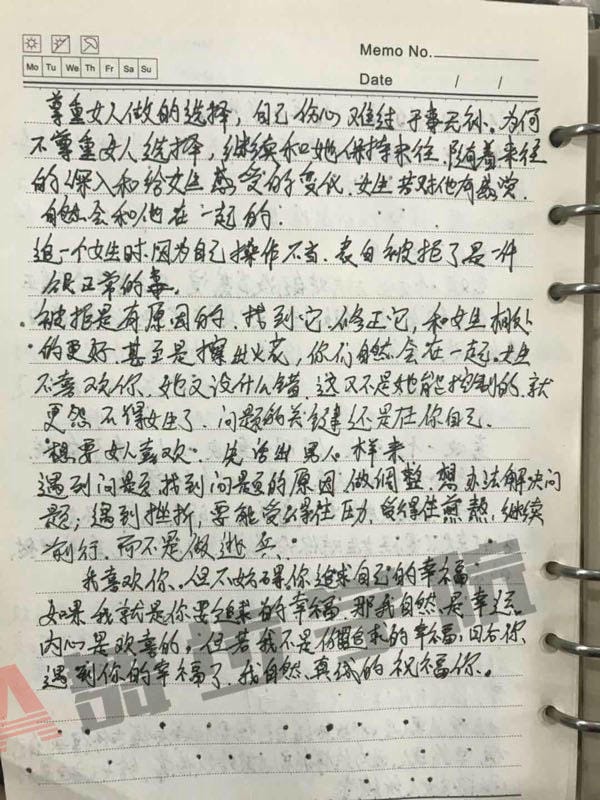 Memo No.
Mo Tu We Th Fr Sa Su
Date / /
尊重女人做的选择，自己伤心难过于事无补。为何
不尊重女人选择，继续和她保持来往。随着来往
的深入和给女生感受的变化，女生若对他有感觉，
自然会和他在一起的；
追一个女生时，因为自己操作不当，表白被拒了是一件
很正常的事。
被拒是有原因的，找到它，修正它，和女生相处
的更好，甚至是擦出火花，你们自然会在一起。女生
不喜欢你，她又没什么错，这又不是她能控制的，就
更怨不得女生了，问题的关键还是在你自己。
想要女人喜欢，先活出男人样来，
遇到问题，找到问题的原因，做调整，想办法解决问
题；遇到挫折，要能受得住压力，受得住煎熬，继续
前行，而不是做逃兵。
我喜欢你，但不妨碍你追求自己的幸福，
如果我就是你要追求的幸福，那我自然是幸运
内心是欢喜的，但若我不是你追求的幸福，
遇到你的幸福了，我自然真诚的祝福你。